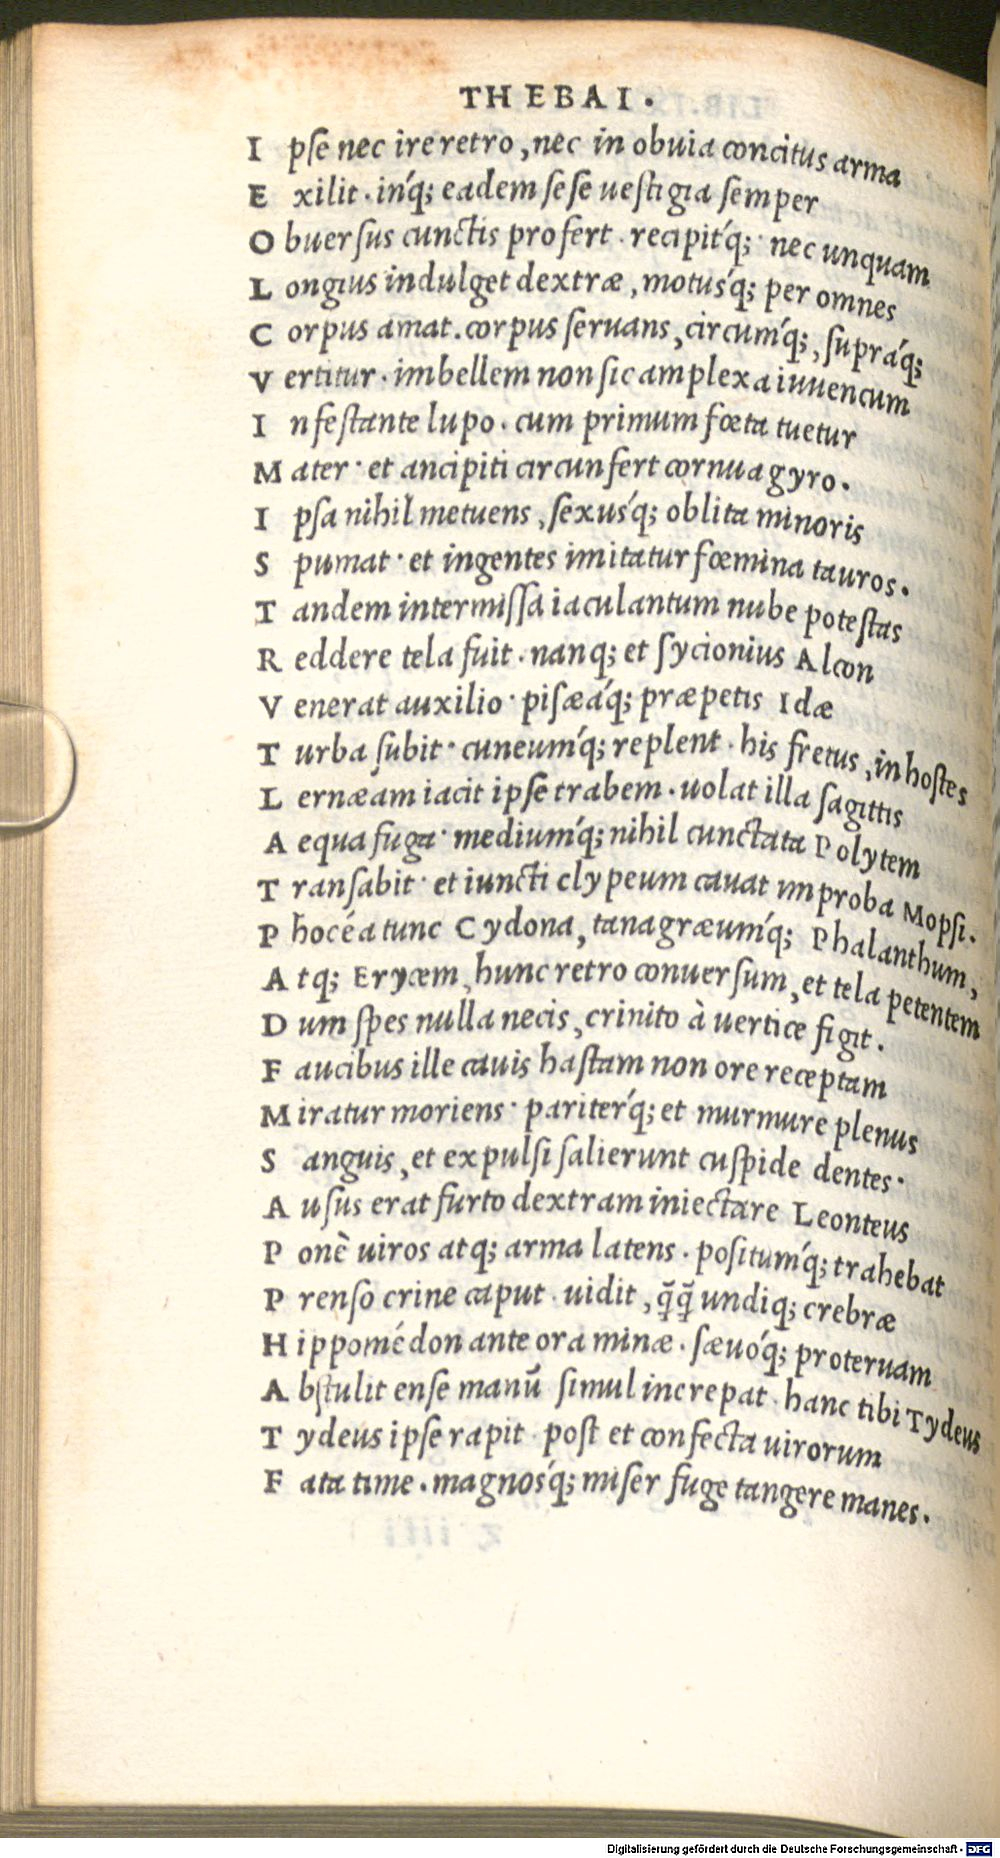 THEBAI.
I pſe nec ire retro, nec in obuia concitus arma
E xilit. inq́; eadem ſeſe ueſtigia ſemper
O buerſus cunctis profert. recipitq́; nec unquam
L ongius indulget dextræ, motusq́; per omnes
C orpus amat. corpus ſeruans, circumq́;, ſupraq́;
V ertitur. imbellem non ſic amplexa iuuencum
I nfeſtante lupo. cum primum fœta tuetur
M ater· et ancipiti circunfert cornua gyro.
I pſa nihil metuens, ſexusq́; oblita minoris
S pumat· et ingentes imitatur fœmina tauros.
T andem intermiſſa iaculantum nube poteſtas
R eddere tela fuit. nanq; et ſycionius Alcon
V enerat auxilio· piſææq́; præpetis Idæ
T urba ſubit· cuneumq́; replent. his fretus, in hoſtes
L ernæam iacit ipſe trabem. uolat illa ſagittis
A equa fuga· mediumq́; nihil cunctata Polytem
T ranſabit· et iuncti clypeum cauat improba Mopſi.
P hocéa tunc Cydona, tanagræumq́; Phalanthum,
A tq; Erycem, hunc retro conuerſum, et tela petentem
D um ſpes nulla necis, crinito à uertice figit.
F aucibus ille cauis haſtam non ore receptam
M iratur moriens· pariterq́; et murmure plenus
S anguis, et expulſi ſalierunt cuſpide dentes·
A uſus erat furto dextram iniectare Leonteus
P onè uiros atq; arma latens. poſitumq́; trahebat
P renſo crine caput. uidit, q̃q̃ undiq; crebræ
H ippomédon ante ora minæ. ſæuoq́; proteruam
A bſtulit enſe manũ ſimul increpat. hanc tibi Tydeus
T ydeus ipſe rapit· poſt et confecta uirorum
F ata time. magnosq́; miſer fuge tangere manes.
Digitalisierung gefördert durch die Deutsche Forschungsgemeinschaft - DFG